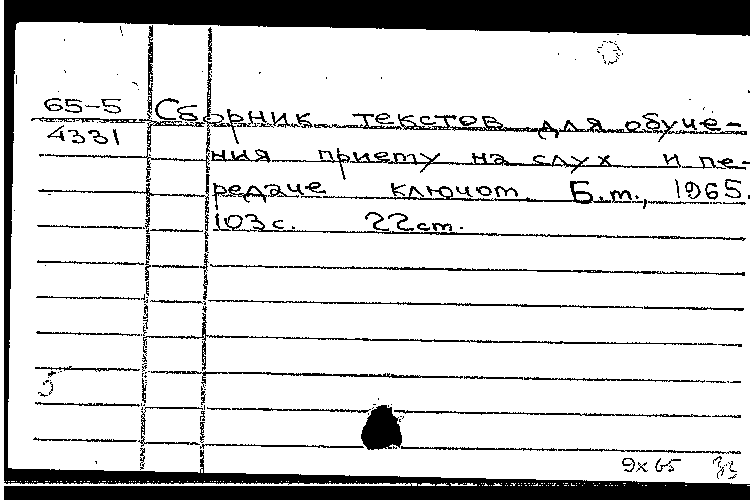 65-5 Сборник текстов для обуче-
4331 ния приему на слух и пе-
редаче ключом. Б.м., 1965.
103с. 22см.
5
9х65